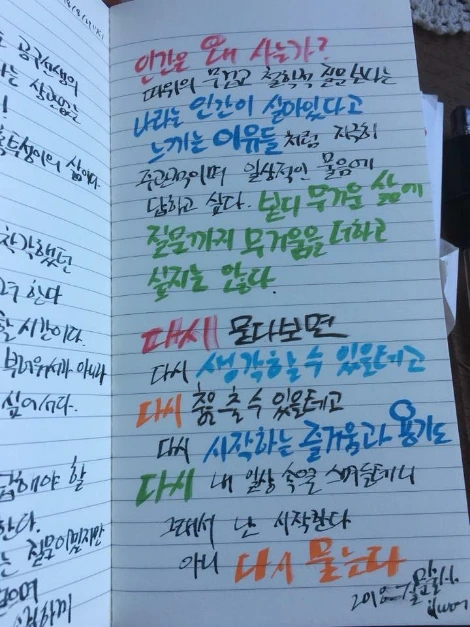 착각했던
한다
할 시간이다.
아니라
싶어서다.
답해야 할
한다.
는 질문이겠지만
으며
인간은 왜 사는가?
따위의 무겁고 철학적 질문보다는
나라는 인간이 살아있다고
느끼는 이유들처럼 지극히
주관적이며 일상적인 물음에
답하고 싶다. 무거운 삶에
질문까지 무거움을 더하고
싶지는 않다.
다시 묻다보면
다시 생각할 수 있을테고
다시 춤을 출 수 있을테고
다시 시작하는 즐거움과 용기도
다시 내 일상 속을 스며들테니
그래서 난 시작한다
아니 다시 묻는다